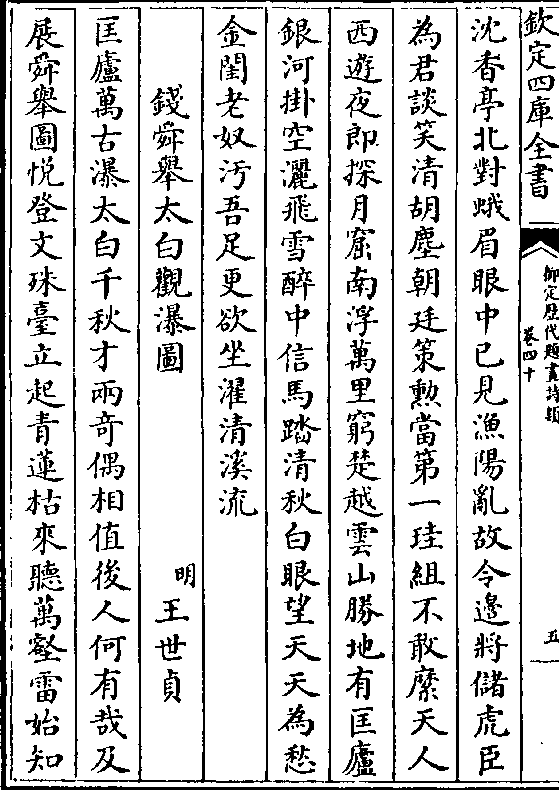 欽定四庫全書
御定歴代題畫詩類
卷四十
五
沈香亭北對蛾眉眼中已見漁陽亂故令邊將儲虎臣
為君談笑清胡塵朝廷策勲當第一珪組不敢縻天人
西遊夜郎探月窟南浮萬里窮楚越雲山勝地有匡廬
銀河掛空灑飛雪醉中信馬踏清秋白眼望天天為愁
金閨老奴汚吾足更欲坐濯清溪流
錢舜舉太白觀瀑圖
明王世貞
匡廬萬古瀑太白千秋才兩奇偶相值後人何有哉及
展舜舉圖悦登文殊臺立起青蓮枯來聽萬壑雷始知